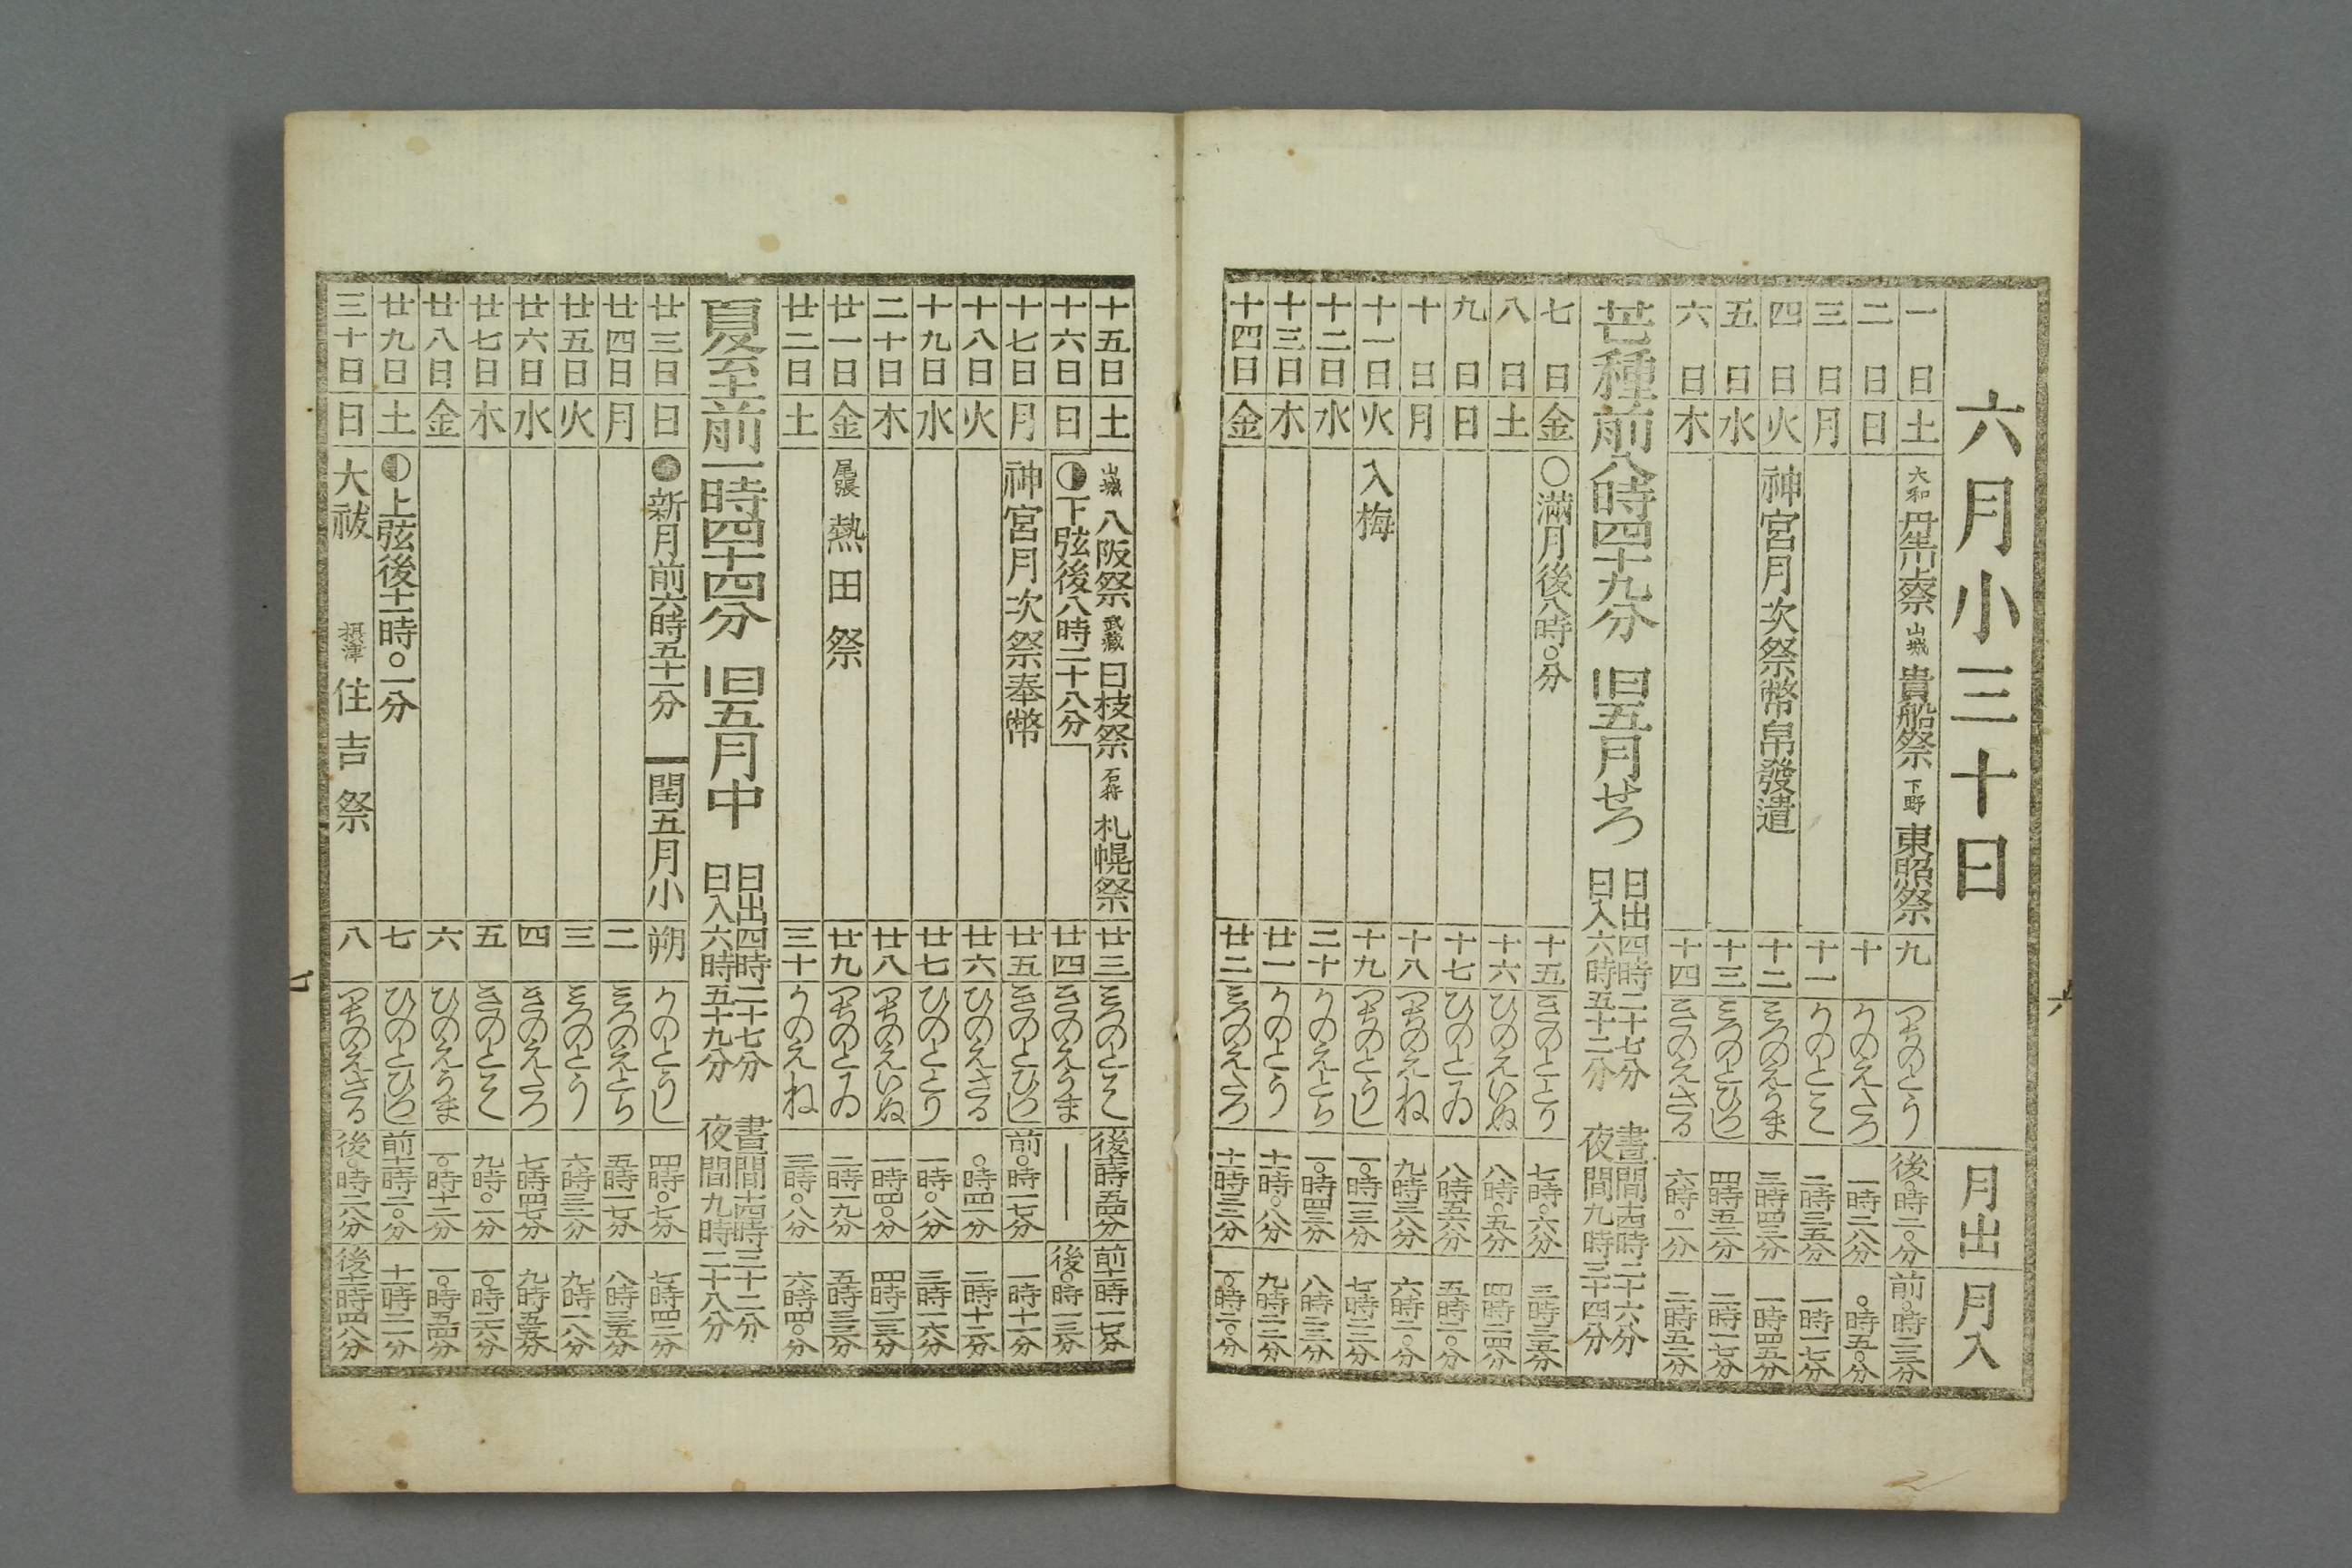 六月小三十日 月出 月入
一日 土 大和 丹生川上祭 山城 貴船祭 下野 東照祭 九 つちのとう 後〇時二〇分 前〇時二三分
二日 日 十 かのえたつ 一時二八分 〇時五〇分
三日 月 十一 かのとみ 二時三五分 一時一七分
四日 火 神宮月次祭幣帛發遣 十二 みつのえうま 三時四三分 一時四五分
五日 水 十三 みつのとひつし 四時五二分 二時一七分
六日 木 十四 きのえさる 六時〇一分 二時五二分
芒種前八時四十九分 旧五月せつ 日出四時二十七分 日入六時五十二分 晝間十四時二十六分 夜間九時三十四分
七日 金 ○滿月後八時〇分 十五 きのととり 七時〇六分 三時三五分
八日 土 十六 ひのえいぬ 八時〇五分 四時二四分
九日 日 十七 ひのとゐ 八時五六分 五時二〇分
十日 月 十八 つちのえね 九時三八分 六時二〇分
十一日 火 入梅 十九 つちのとうし 一〇時一三分 七時二二分
十二日 水 二十 かのえとら 一〇時四三分 八時二三分
十三日 木 廿一 かのとう 十一時〇八分 九時二二分
十四日 金 廿二 みつのえたつ 十一時三二分 一〇時二〇分
六
十五日 土 山城 八阪祭 武藏 日枝祭 石狩 札幌祭 廿三 みつのとみ 後十一時五四分 前十一時一七分
十六日 日 ◑下弦後八時二十八分 廿四 きのえうま — 後〇時一三分
十七日 月 神宮月次祭奉幣 廿五 きのとひつし 前〇時一七分 一時十一分
十八日 火 廿六 ひのえさる 〇時四一分 二時十二分
十九日 水 廿七 ひのととり 一時〇八分 三時一六分
二十日 木 廿八 つちのえいぬ 一時四〇分 四時二三分
廿一日 金 尾張 熱田祭 廿九 つちのとゐ 二時一九分 五時三三分
廿二日 土 三十 かのえね 三時〇八分 六時四〇分
夏至前一時四十四分 旧五月中 日出四時二十七分 日入六時五十九分 晝間十四時三十二分 夜間九時二十八分
廿三日 日 ●新月前六時五十一分 閏五月小 朔 かのとうし 四時〇七分 七時四二分
廿四日 月 二 みつのえとら 五時一七分 八時三五分
廿五日 火 三 みつのとう 六時三二分 九時一八分
廿六日 水 四 きのえたつ 七時四七分 九時五五分
廿七日 木 五 きのとみ 九時〇一分 一〇時二六分
廿八日 金 六 ひのえうま 一〇時十二分 一〇時五四分
廿九日 土 ◐上弦後十一時〇一分 七 ひのとひつし 前十一時二〇分 十一時二一分
三十日 日 大祓 摂津 住吉祭 八 つちのえさる 後〇時二六分 後十一時四八分
七